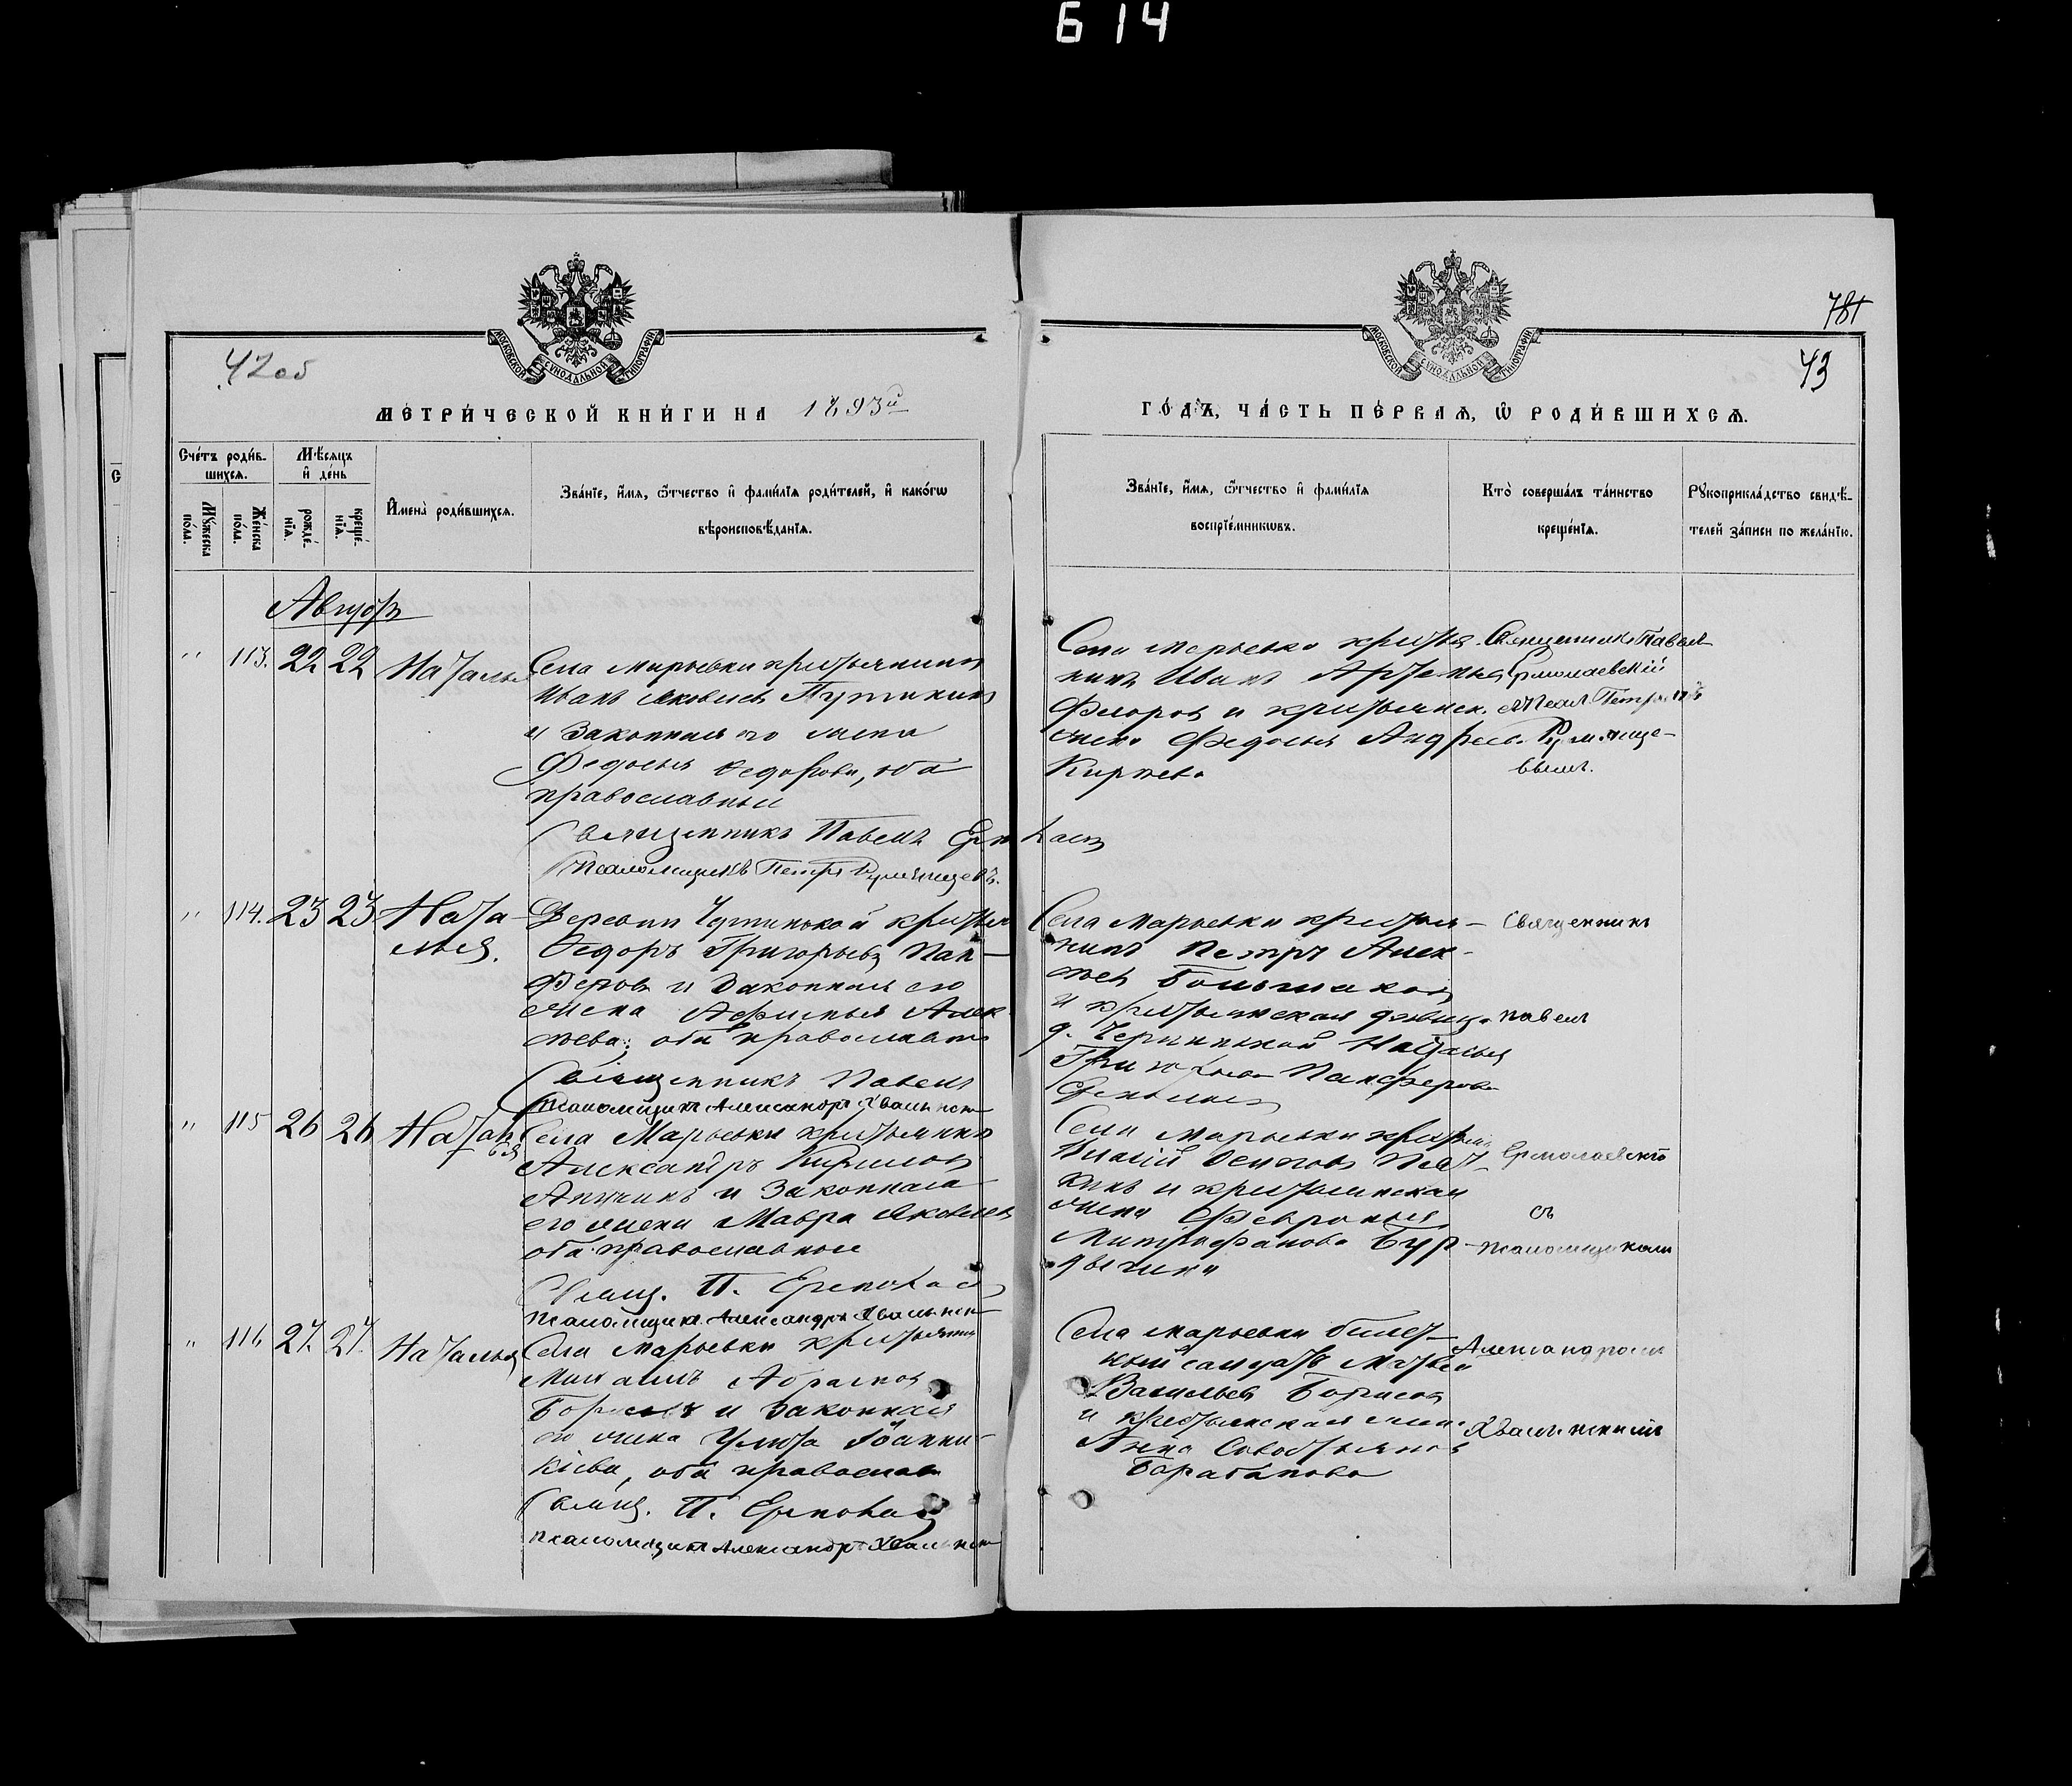 614
781
42об
43
МОСКОВСКОЙ СѴНОДАЛЬНОЙ ТИПОГРАФІИ
МОСКОВСКОЙ СѴНОДАЛЬНОЙ ТИПОГРАФІИ
МЕТРИ́ЧЕСКОЙ КНИ́ГИ НА 1893й
ГО́ДЪ, ЧА́СТЬ ПЕ́РВАѦ, Ѡ҆ РОДИ́ВШИХСѦ.
Сче́тъ роди́в-
шихсѧ.
Мꙋ́жеска по́ла.
Же́нска по́ла.
Мѣ́сѧцъ
и҆ де́нь
рожде́-
нїѧ.
креще́-
нїѧ.
И҆мена̀ роди́вшихсѧ.
Зва́нїе, и҆́мѧ, ѻ҆́тчество и҆ фами́лїѧ роди́телей, и҆ како́гѡ
вѣроисповѣ́данїѧ.
Зва́нїе, и҆́мѧ, ѻ҆́тчество и҆ фами́лїѧ
воспрїе́мникѡвъ.
Кто̀ соверша́лъ та́инство
креще́нїѧ.
Рꙋкоприкла́дство свидѣ́-
телей за́писи по жела́нїю.
Августъ
" 113. 22 22 Наталья
Села Марьевки крестьянинъ
Иванъ Яковлевъ
и законная его жена
Федосья Федорова, оба
православные
Священникъ Павелъ
Псаломщикъ Петръ Румянцевъ.
Села Марьевки крестья-
нинъ Иванъ Артемьевъ
Федоровъ и крестьянск.
жена Федосья Андреева
Киреева
Священникъ Павелъ
Ермолаевскій
съ псал. Петромъ
Румянце-
вымъ.
" 114. 23 23 Ната-
лья.
Деревни крестьян
Федоръ Григорьевъ Пан-
феровъ и законная его
жена Афимья Алек-
сеева; оба православные
Священникъ Павелъ
Псаломщикъ Александръ Хвалынск
Села Марьевки крестья-
нинъ Петръ Алек-
сеевъ Большаковъ
и крестьянская девица
д. Наталья
Григорьева Панферова
Священникъ
Павелъ
" 115 26 26 Наталья
Села Марьевки крестьянинъ
Александръ Кириловъ
и законная
его жена Мавра Яковлева
оба православные
Свящ. П.
Псаломщикъ Александръ Хвалынск
Села Марьевки крестьян
Осиповъ
и крестьянская
жена Февронья
Митрофанова
Ермолаевскій
съ
псаломщикомъ
" 116 27. 27. Наталья
Села Марьевки крестьянинъ
Михаилъ Абрамовъ
Борисовъ и законная
его жена Улита Іоанни-
кіева, оба православн
Свящ. П.
псаломщикъ Александръ Хвалынск
Села Марьевки билет-
ный солдатъ Матвей
Васильевъ Борисовъ
и крестьянская жена
Анна Савостьянова
Барабанова
Александромъ
Хвалынскимъ